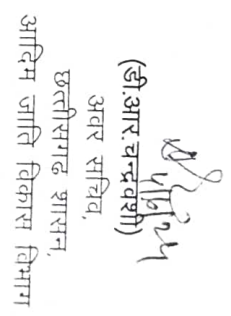 (डी.आर.चन्द्रवंशी)
अवर सचिव,
छत्तीसगढ़ शासन,
आदिम जाति विकास विभाग